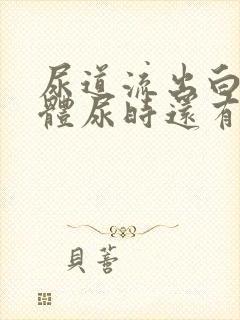 尿道流出白
體尿時還有
貝蒼